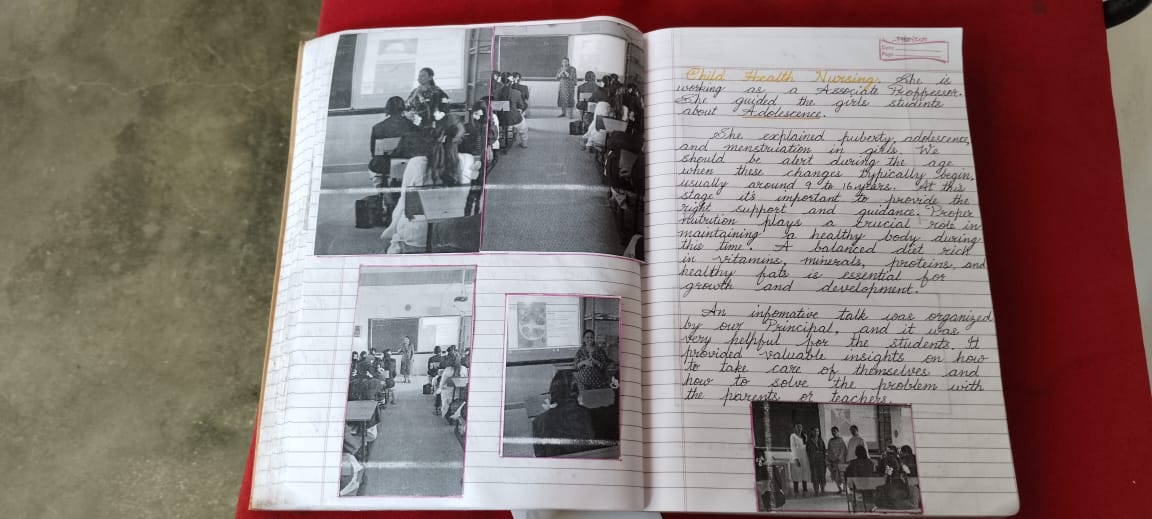 Date
Page
Child Health Nursing. She is
working as a Associate Proffessor.
She guided the girls students
about Adolescence.
She explained puberty, adolescence,
and menstruation in girls. We
should be alert during the age
when these changes typically begin,
usually around 9 to 16 years. At this
stage it's important to provide the
right support and guidance. Proper
nutrition plays a crucial role in
maintaining a healthy body during
this time. A balanced diet rich
in vitamins, minerals, proteins, and
healthy fats is essential for
growth and development.
An infomative talk was organized
by our Principal, and it was
very helpful for the students. It
provided valuable insights on how
to take care of themselves and
how to solve the problem with
the parents or teachers.